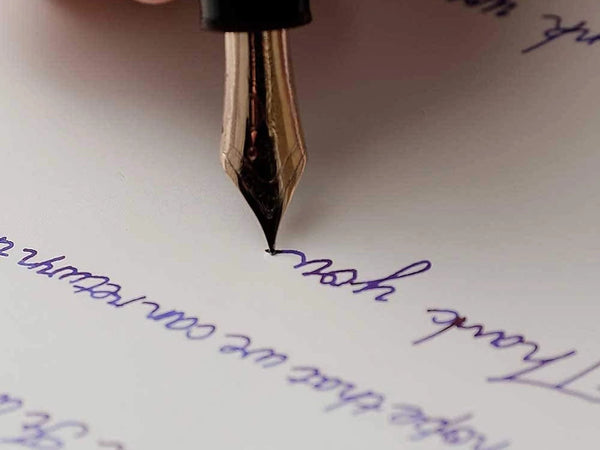 It
hope that we can return
Thank you